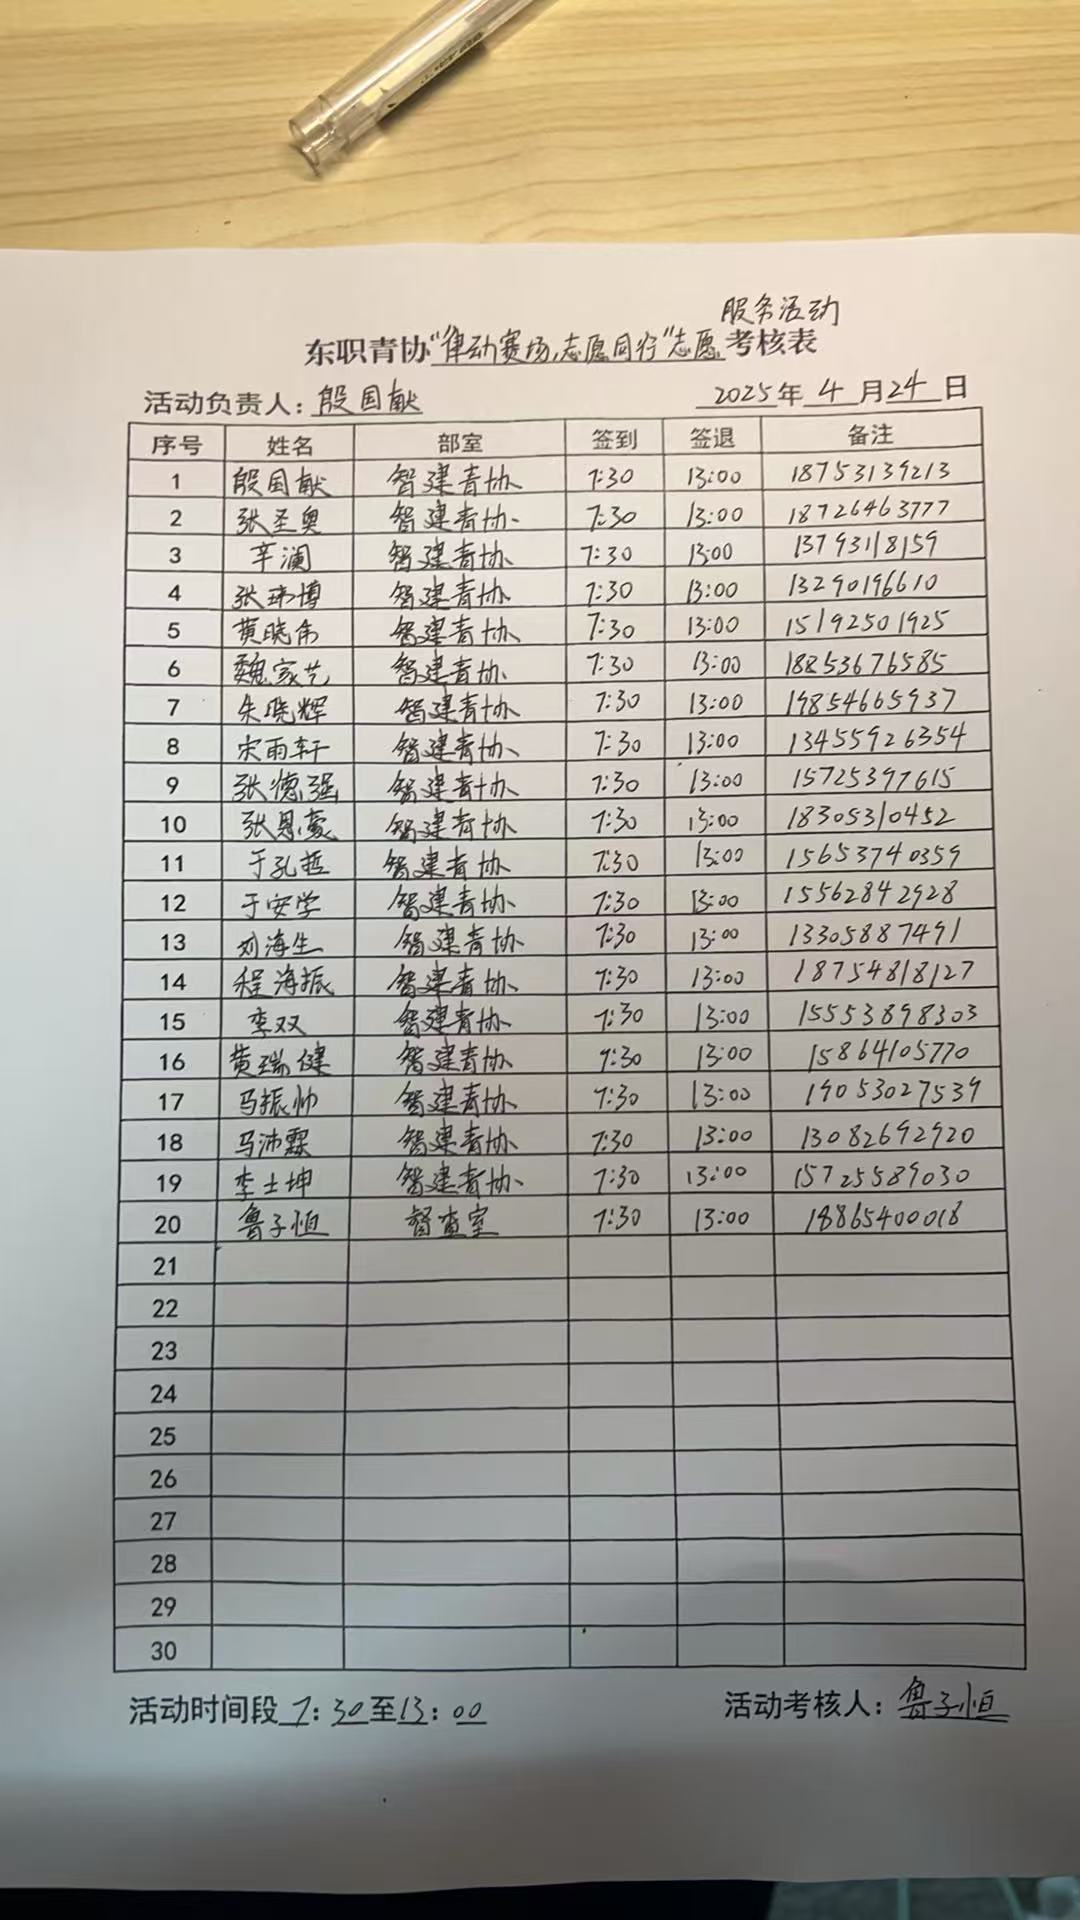 服务活动
东职青协“律动赛场,志愿同行”志愿考核表
活动负责人：殷国献 2025年4月24日
序号 姓名 部室 签到 签退 备注
1 殷国献 智建青协 7:30 13:00 18753139213
2 张圣奥 智建青协 7:30 13:00 18726463777
3 辛澜 智建青协 7:30 13:00 13793118159
4 张玮博 智建青协 7:30 13:00 13290196610
5 黄晓伟 智建青协 7:30 13:00 15192501925
6 魏家艺 智建青协 7:30 13:00 18853676585
7 朱晓辉 智建青协 7:30 13:00 19854665937
8 宋雨轩 智建青协 7:30 13:00 13455926354
9 张德强 智建青协 7:30 13:00 15725397615
10 张恩豪 智建青协 7:30 13:00 18305310452
11 于孔哲 智建青协 7:30 13:00 15653740359
12 于安学 智建青协 7:30 13:00 15562842928
13 刘海生 智建青协 7:30 13:00 13305887491
14 程海振 智建青协 7:30 13:00 18754818127
15 李双 智建青协 7:30 13:00 15553898303
16 黄瑞健 智建青协 7:30 13:00 15864105770
17 马振帅 智建青协 7:30 13:00 19053027539
18 马沛霖 智建青协 7:30 13:00 13082692920
19 李士坤 智建青协 7:30 13:00 15725589030
20 鲁子恒 督查室 7:30 13:00 18865400018
21
22
23
24
25
26
27
28
29
30
活动时间段 7:30至13:00 活动考核人：鲁子恒